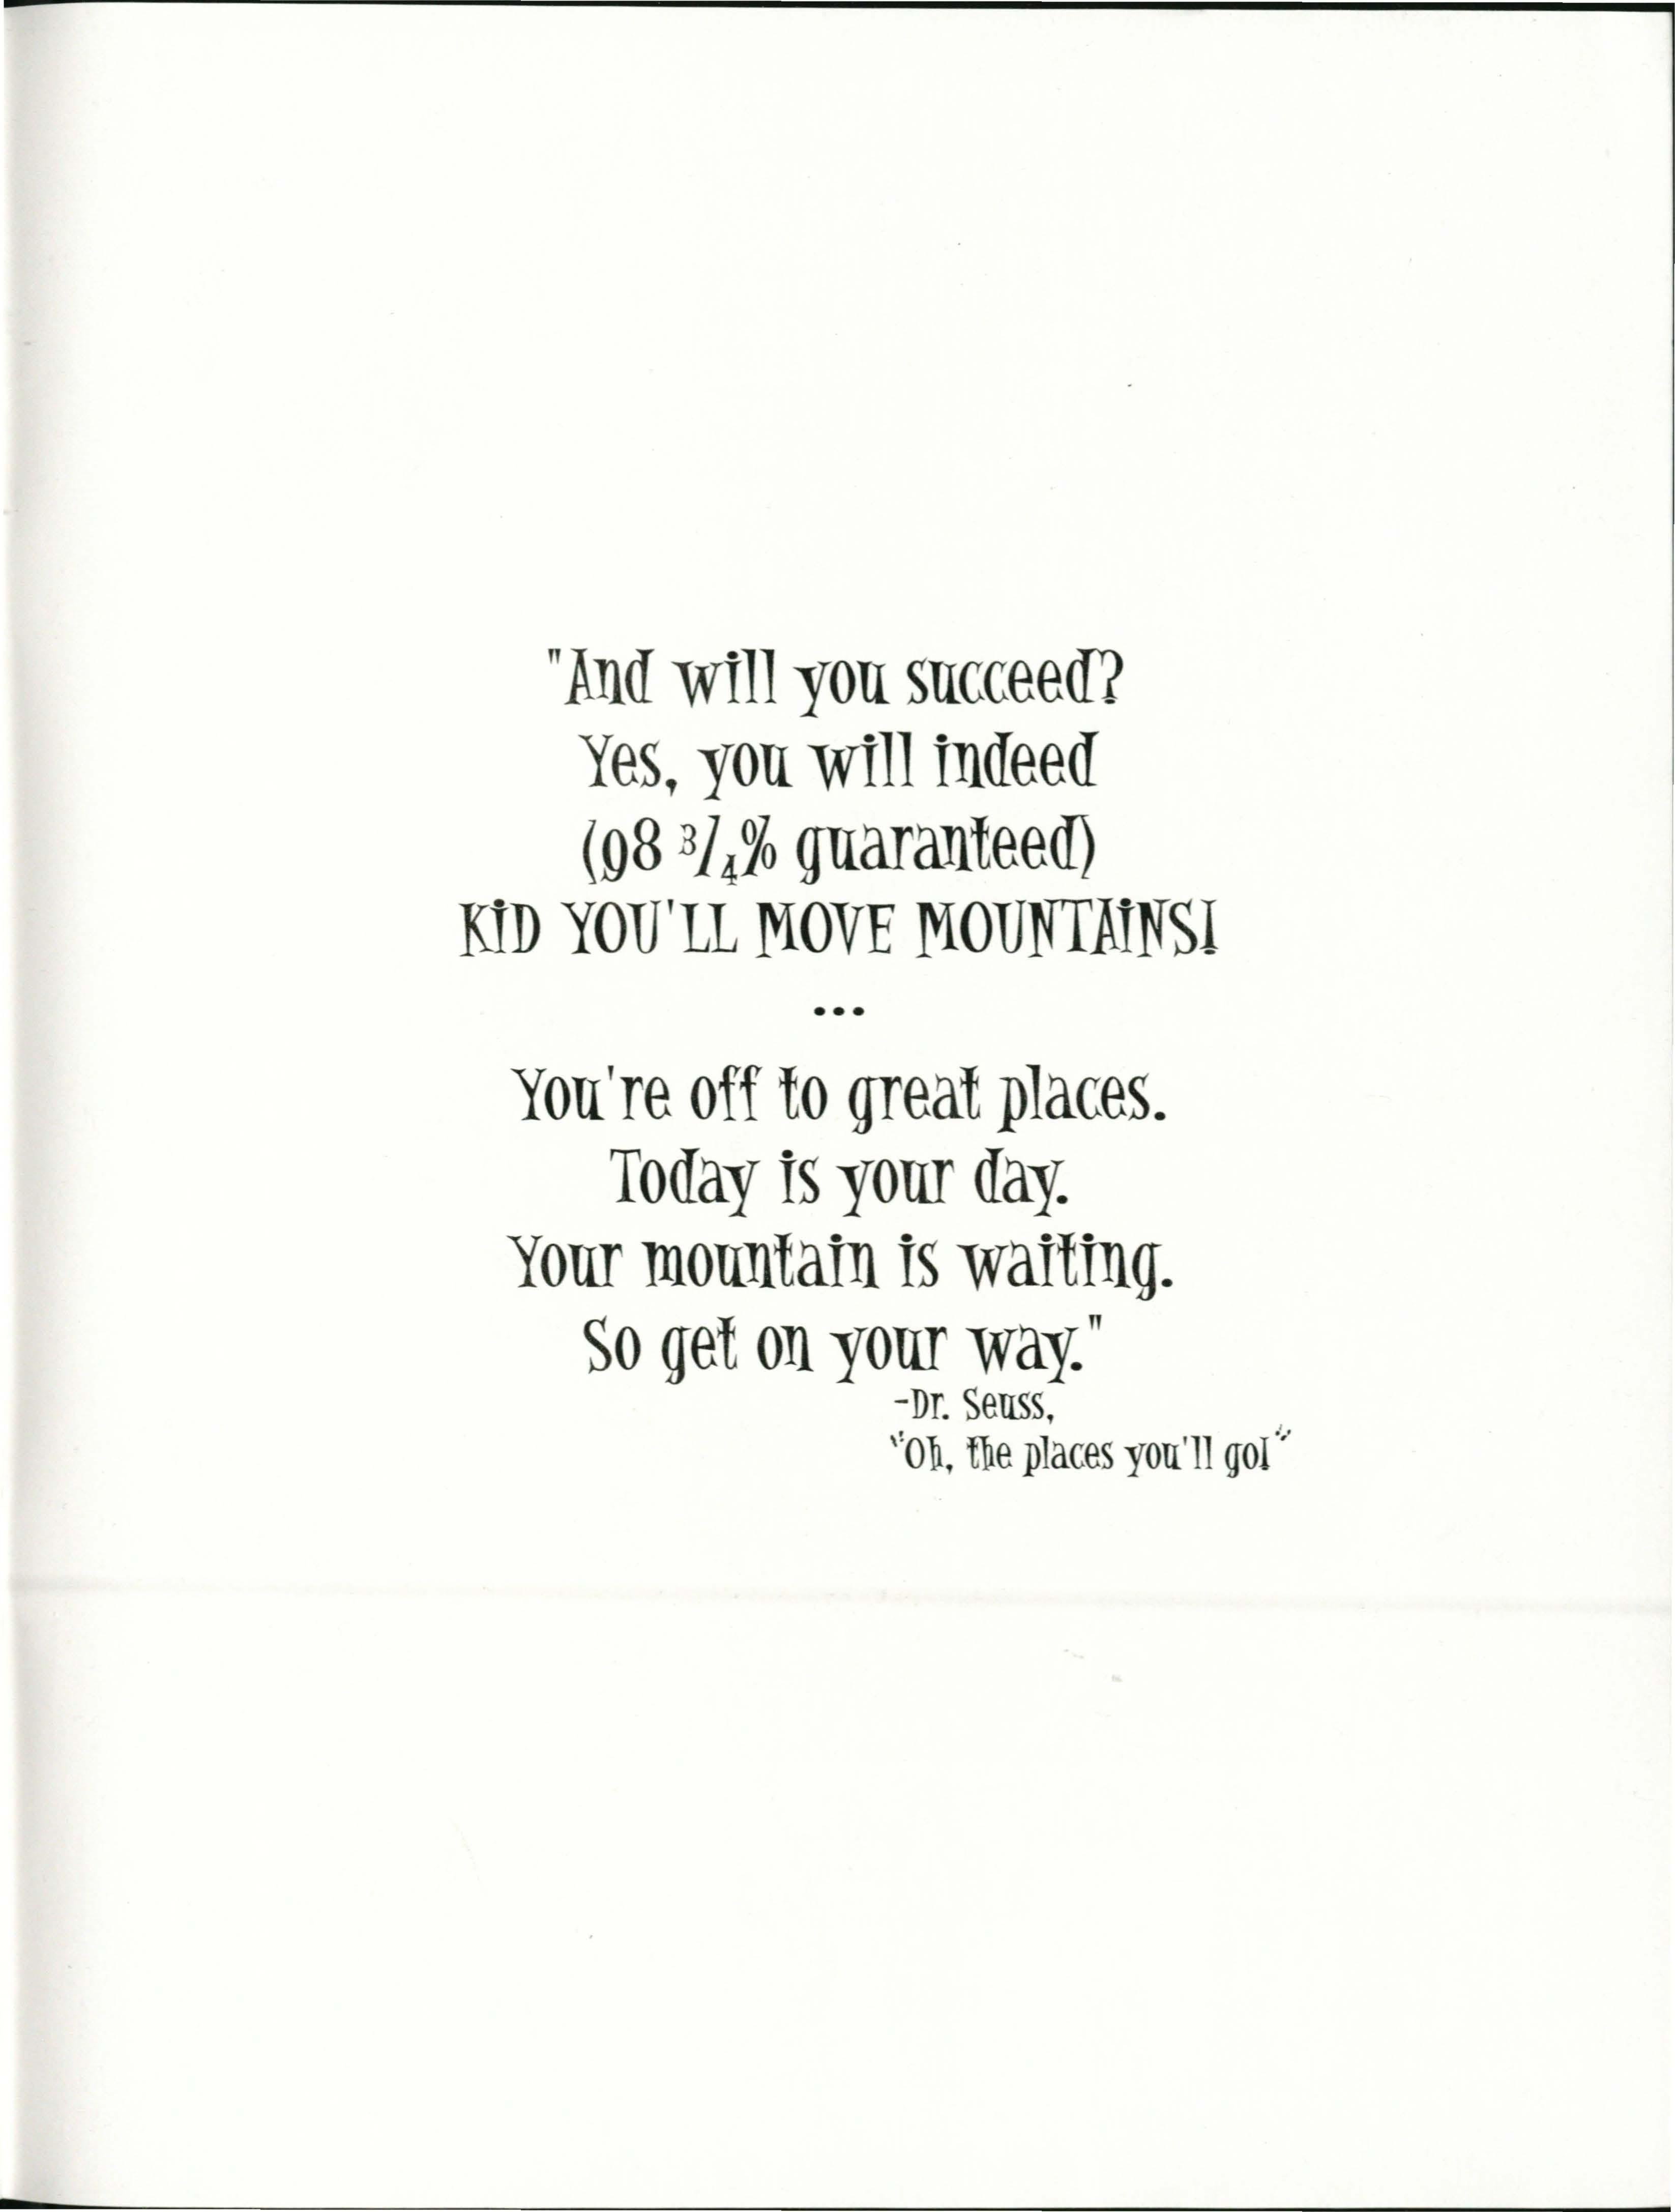 "And will you succeed?
Yes, you will indeed
(98 3/4% guaranteed)
KiD YOU'LL MOVE MOUNTAiNS!
...
You're off to great places.
Today is your day.
Your mountain is waiting.
So get on your way."
-Dr. Seuss,
"Oh, the places you'll go!"